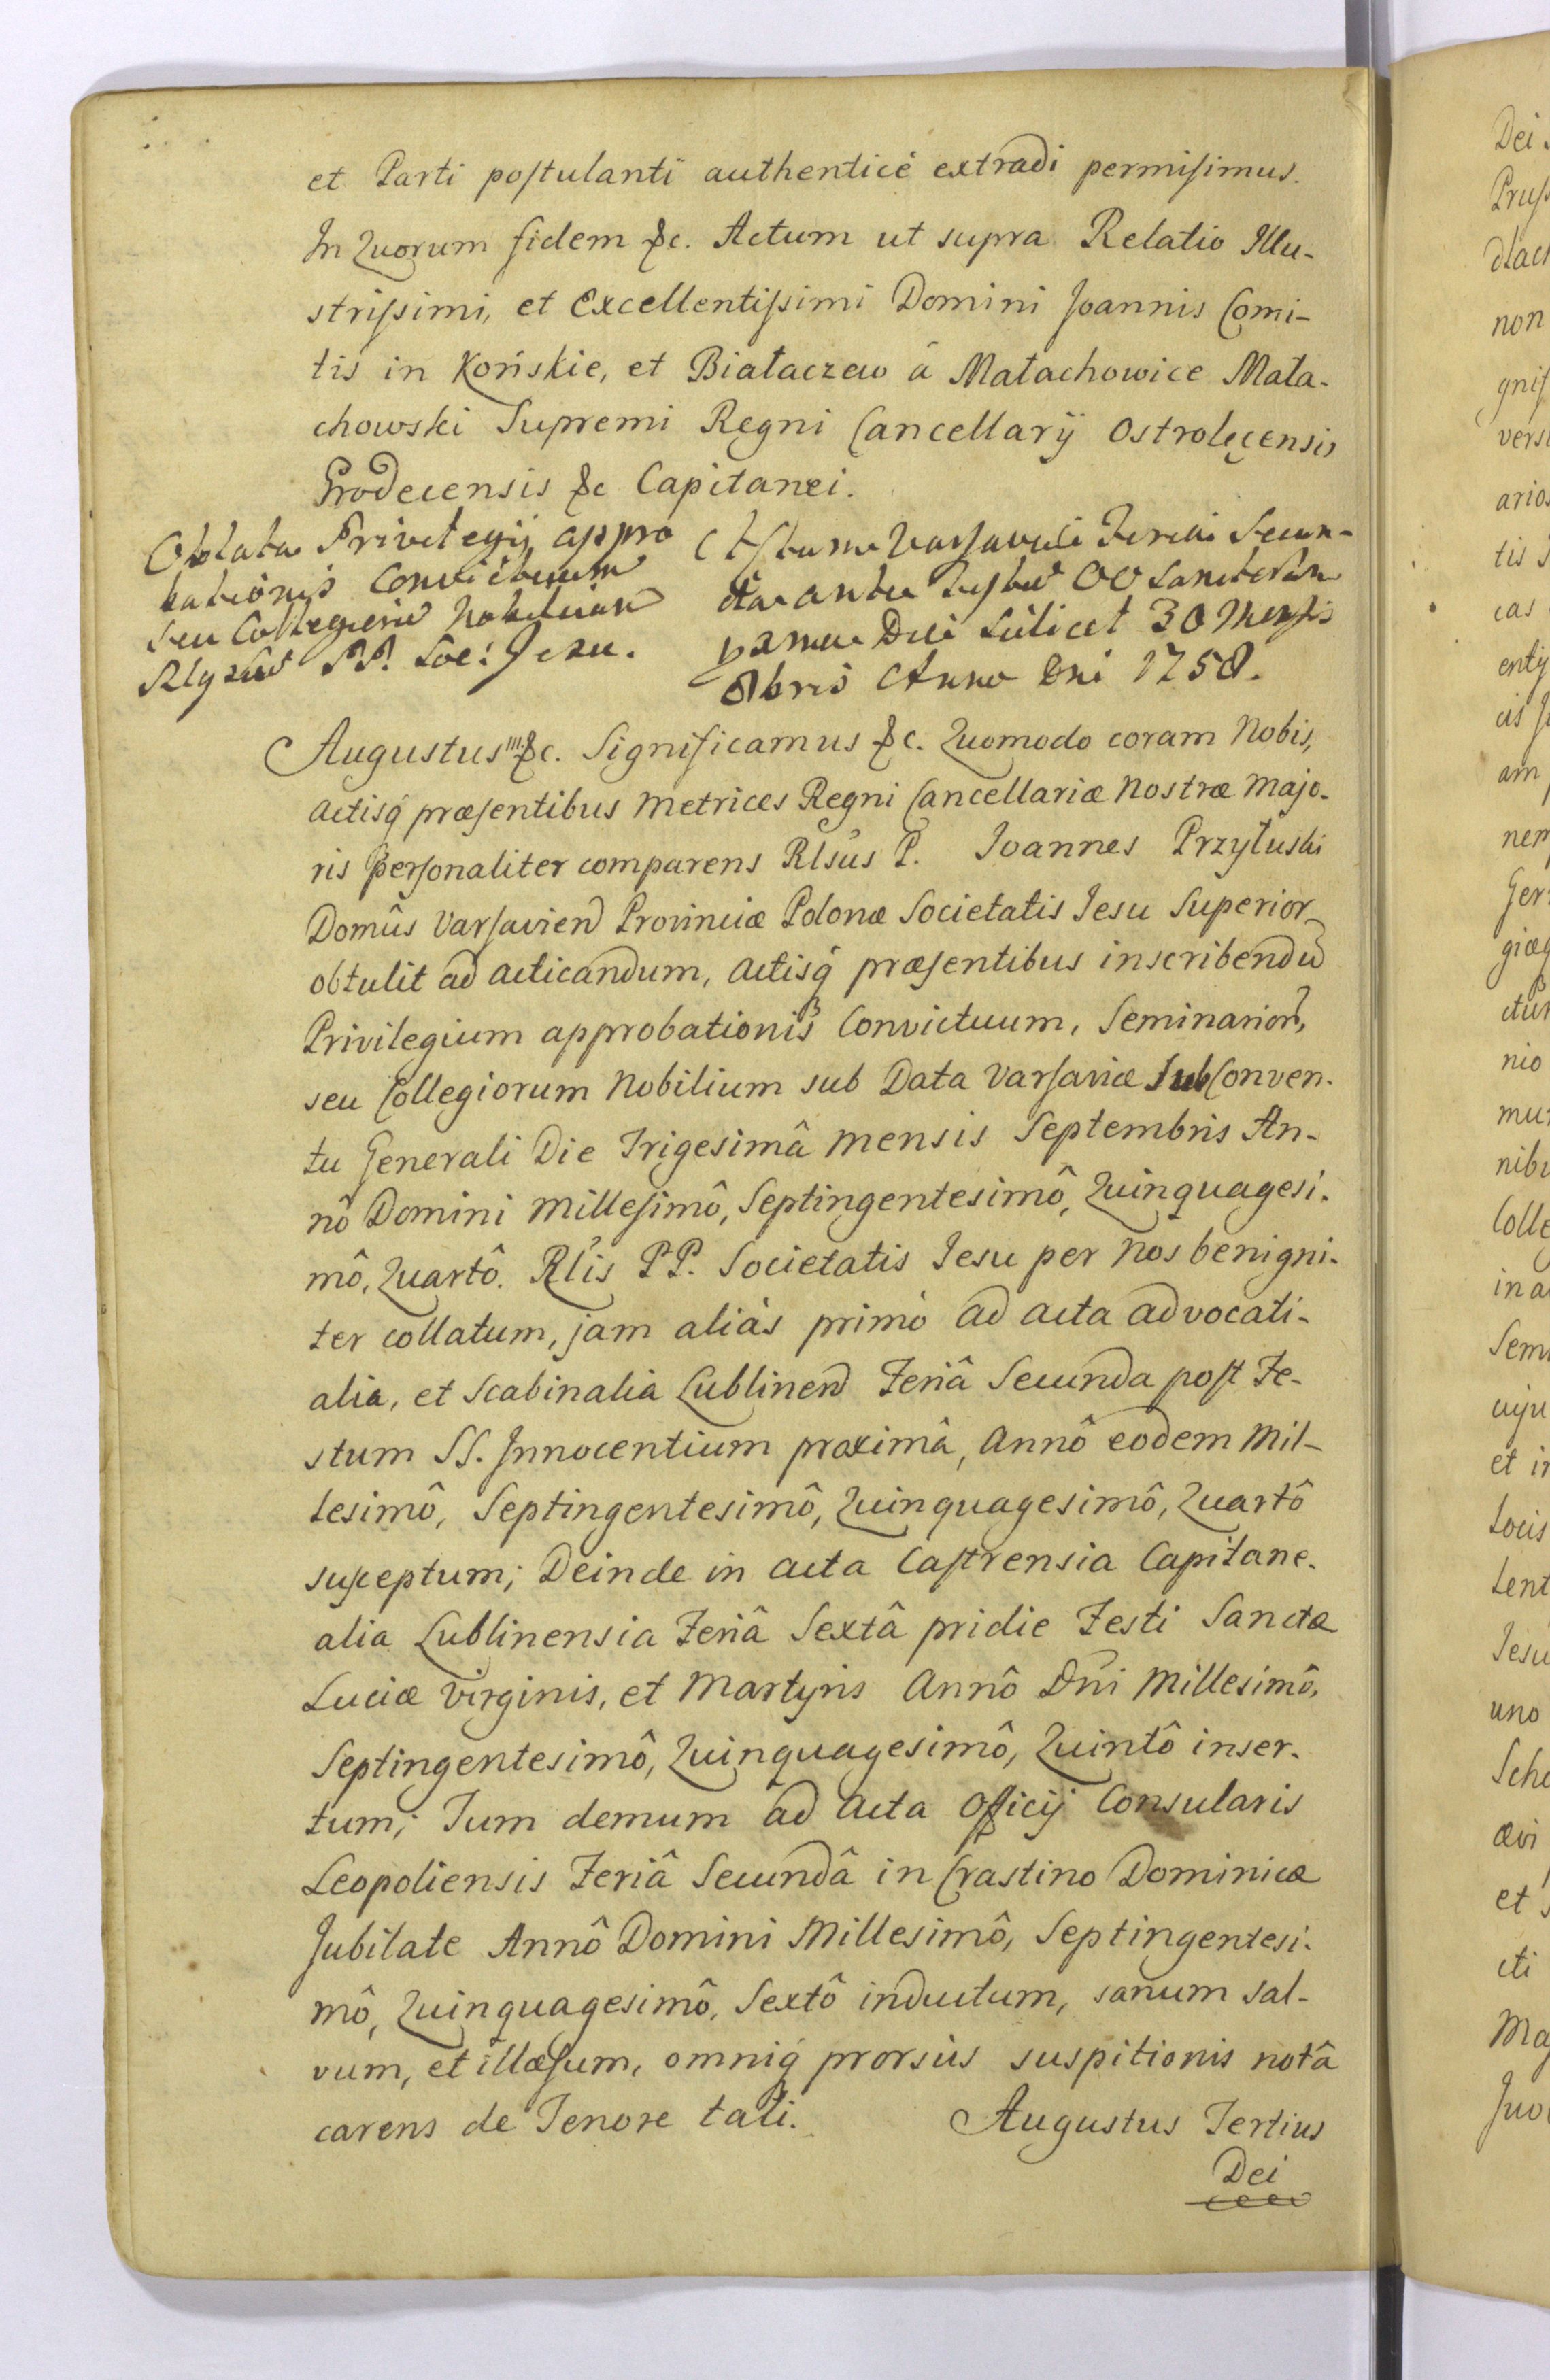 et Parti postulanti authenticè extradi permisimus.
In Quorum fidem &c. Actum ut supra Relatio Illu-
strissimi, et Excellentissimi Domini Joannis Comi-
tis in Końskie, et Białaczew á Małachowice Mała-
chowski Supremi Regni Cancellarÿ Ostrolęcensis
Grodecensis &c Capitanei.
Oblata Privilegij appro
bationis Convictuum
seu Collegiorũ Nobilium
Rlgsis PP. Soc: Jesu.
Actum Varsaviæ Feria Secun-
da ante Festũ OO Sanctorũ
pxma Die scilicet 30 Mensis
8bris Anno Dni 1758.
Augustus III &c. Significamus &c. Quomodo coram Nobis,
actisq́ præsentibus Metrices Regni Cancellariæ Nostræ Majo-
ris personaliter comparens Rlsũs P. Joannes Przyłuski
Domûs Varsavien Provinciæ Polonæ Societatis Jesu Superior
obtulit ad acticandum, actisq́ præsentibus inscribendũ
Privilegium approbationis Convictuum, Seminarior,
seu Collegiorum Nobilium sub Data Varsaviæ sub Conven-
tu Generali Die Trigesimâ mensis Septembris An-
nô Domini Millesimô, Septingentesimô, Quinquagesi-
mô, Quartô. Rlis PP. Societatis Jesu per Nos benigni-
ter collatum, jam aliàs primò ad acta advocati-
alia, et Scabinalia Lublinen Feriâ Secunda post Fe-
stum SS. Innocentium proximâ, Annô eodem Mil-
lesimô, Septingentesimô, Quinquagesimô, Quartô
susceptum; Deinde in acta Castrensia Capitane-
alia Lublinensia Feriâ Sextâ pridie Festi Sanctæ
Luciæ Virginis, et Martyris Annô Dni Millesimô,
Septingentesimô, Quinquagesimô, Quintô inser-
tum; Tum demum ad Acta Officij Consularis
Leopoliensis Feriâ Secundâ in Crastino Dominicæ
Jubilate Annô Domini Millesimô, Septingentesi-
mô, Quinquagesimô, Sextô inductum, sanum sal-
vum, et illæsum, omniq́ prorsùs suspitionis notâ
carens de Tenore tali. Augustus Tertius
Dei